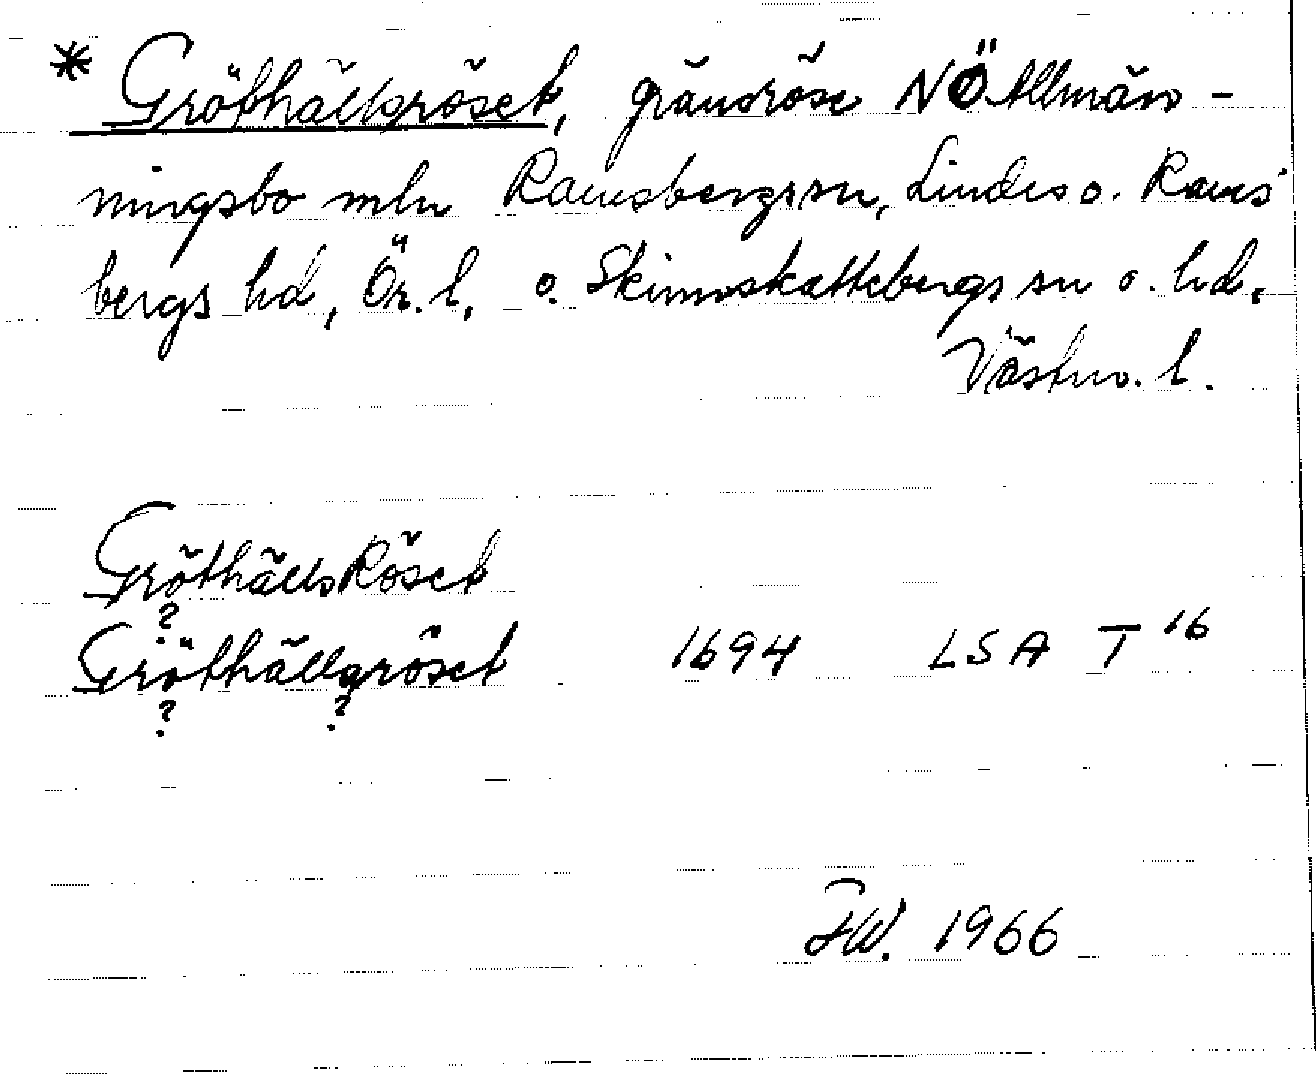 * Gröthällsröset, gränsröse NÖ Allmän-
ningsbo mln Ramsbergs sn, Lindes o. Rams
bergs hd, Ör. l. o. Skinnskattebergs sn o. hd.
Västm. l.
GröthällsRöset
?
Gröthällgröset 1694 LSA T 16
? ?
FW. 1966